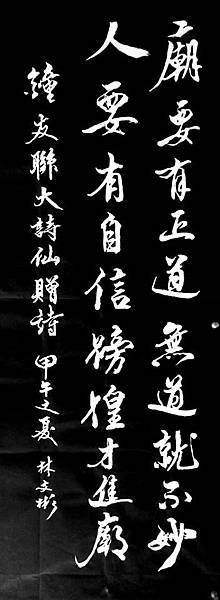 廟要有正道無道就不妙
人要有自信徬徨才進廟
鐘友聯大詩仙贈詩 甲午之夏 林文彬